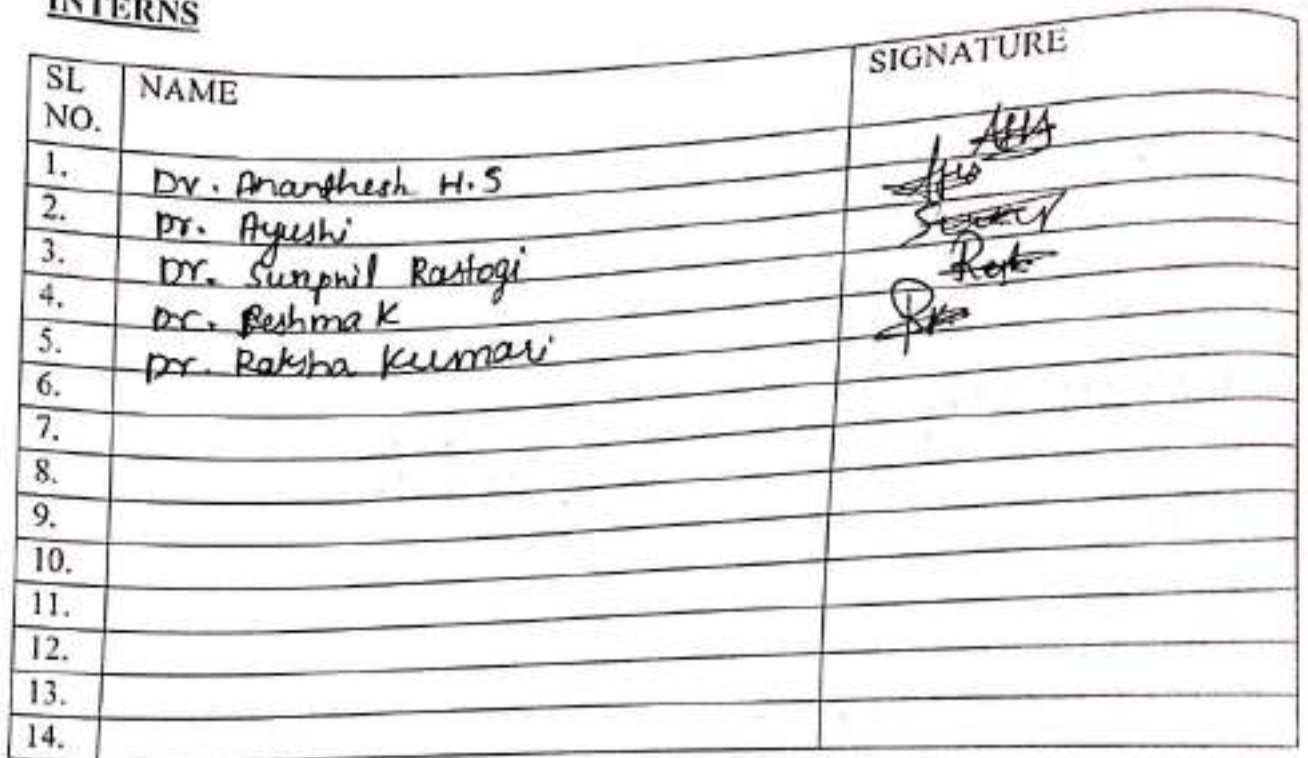 INTERNS
SL NO. NAME SIGNATURE
1. Dr. Ananthesh H.S
2. Dr. Ayushi
3. Dr. Rastogi
4. Dr. Reshma K
5. Dr. Raksha Kumari
6.
7.
8.
9.
10.
11.
12.
13.
14.